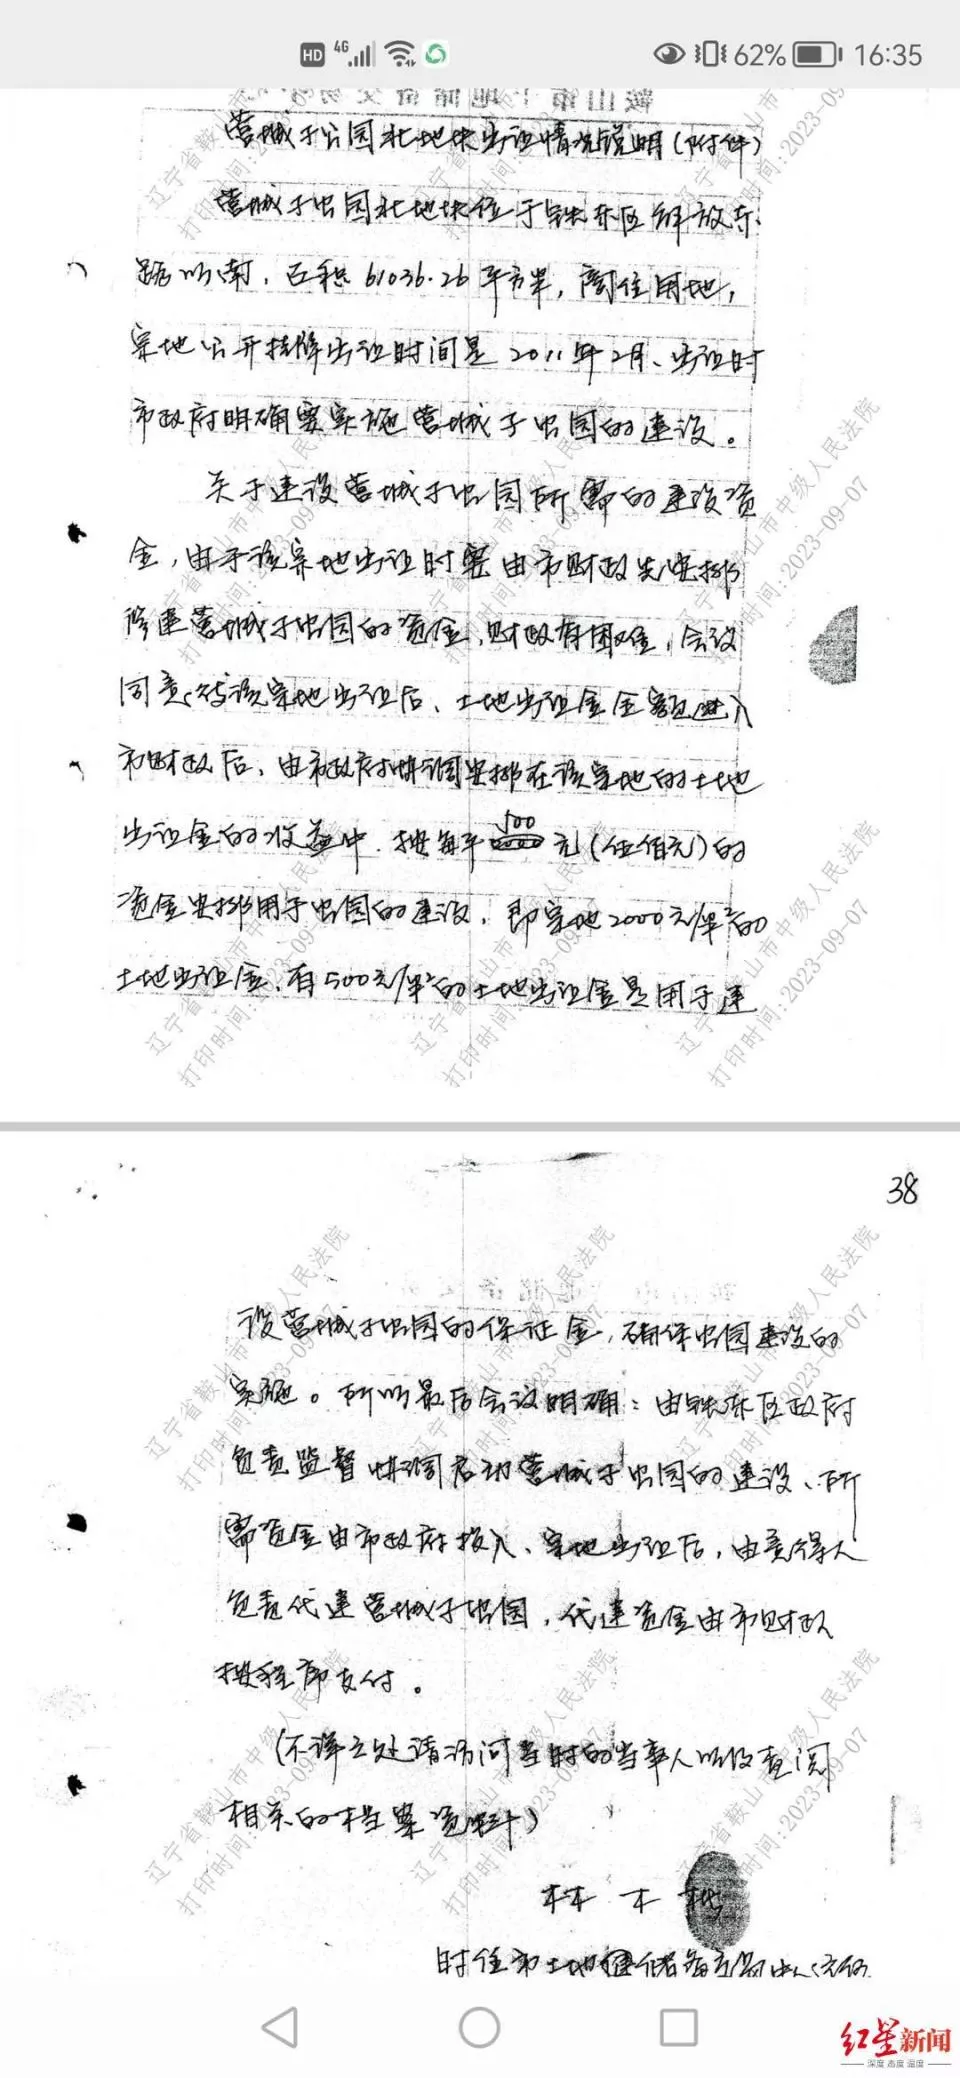 HD 4G 62% 16:35
营城子公园北地块出让情况说明(附件)
营城子公园北地块位于铁东区解放东
路以南，面积61036.26平方米，商住用地，
宗地公开挂牌出让时间是2011年2月、出让时
市政府明确要实施营城子公园的建设。
关于建设营城子公园所需的建设资
金，由于该宗地出让时要由市财政先安排
修建营城子公园的资金，财政有困难，会议
同意：待该宗地出让后、土地出让金全额进入
市财政后、由市政府协调安排在该宗地的土地
出让金的收益中、按每平500元(伍佰元)的
资金安排用于公园的建设、即宗地2000元/米²的
土地出让金、有500元/米²的土地出让金是用于建
38
设营城子公园的保证金，确保公园建设的
实施。所以最后会议明确：由铁东区政府
负责监督协调启动营城子公园的建设、所
需资金由市政府投入、宗地出让后，由竞得人
负责代建营城子公园，代建资金由市财政
按程序支付。
(不详之处请访问当时的当事人以及查阅
相关的档案资料)
林木
时任市土地储备交易中心主任
辽宁省鞍山市中级人民法院
打印时间:2023-09-07
红星新闻
深度 态度 温度